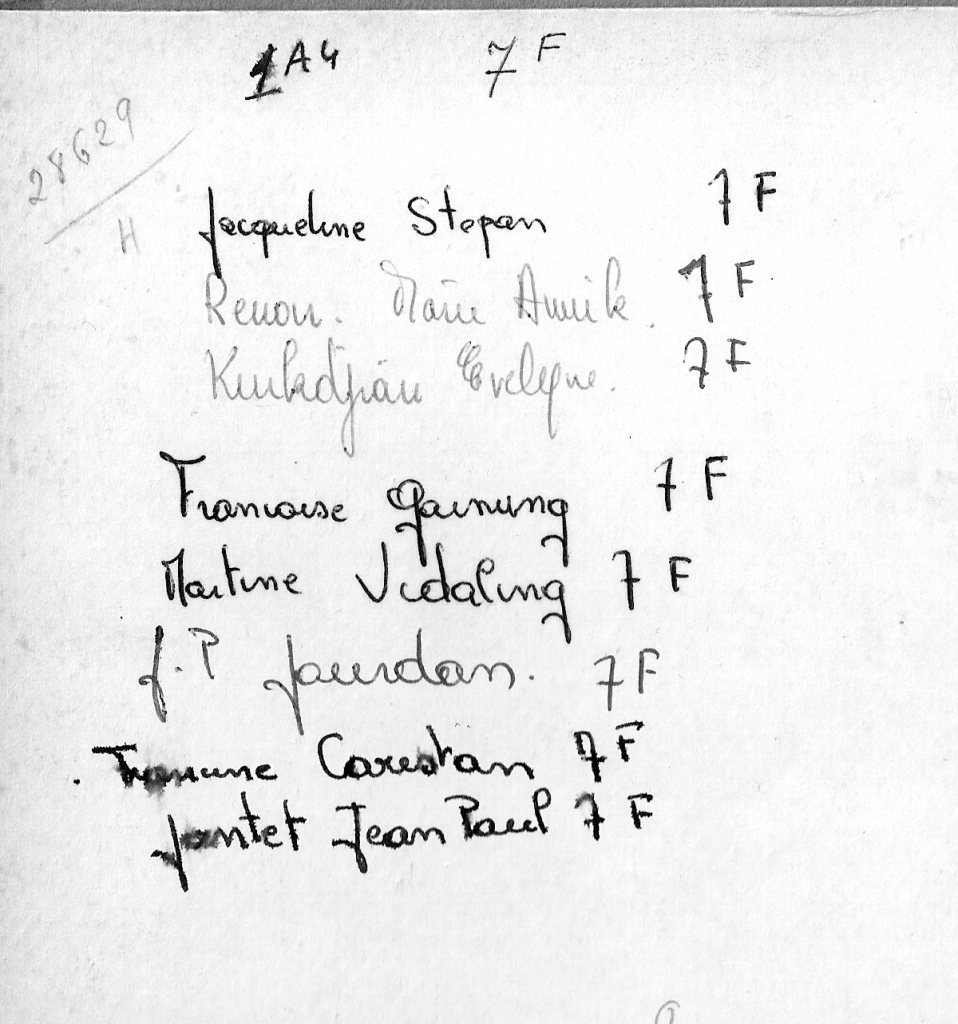 1A4 7F
28629
H
Jacqueline Stepan 7F
Renou. Marie Annik. 7F
Evelyne. 7F
Francoise 7F
Martine Vidaling 7F
J.P Jourdan. 7F
Francine Carestan 7F
Jontet Jean Paul 7F